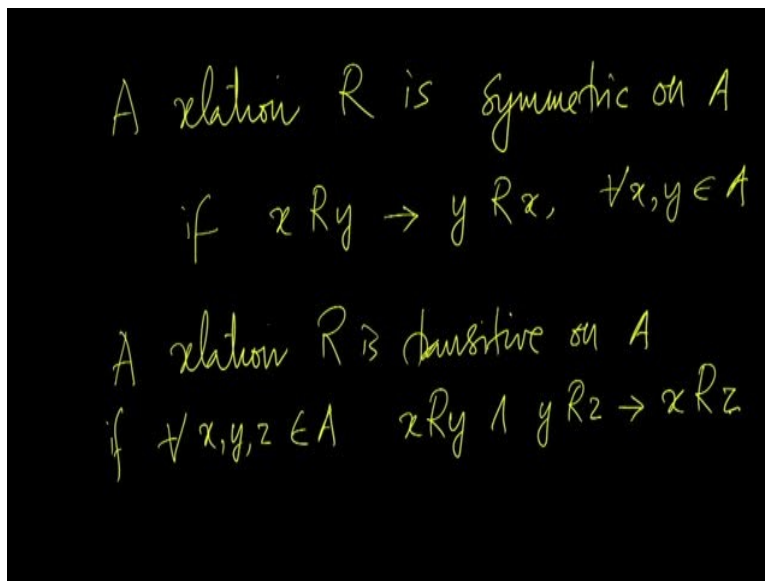 A relation R is symmetric on A
if x R y → y R x, ∀x, y ∈ A
A relation R is transitive on A
if ∀ x, y, z ∈ A x R y ∧ y R z → x R z